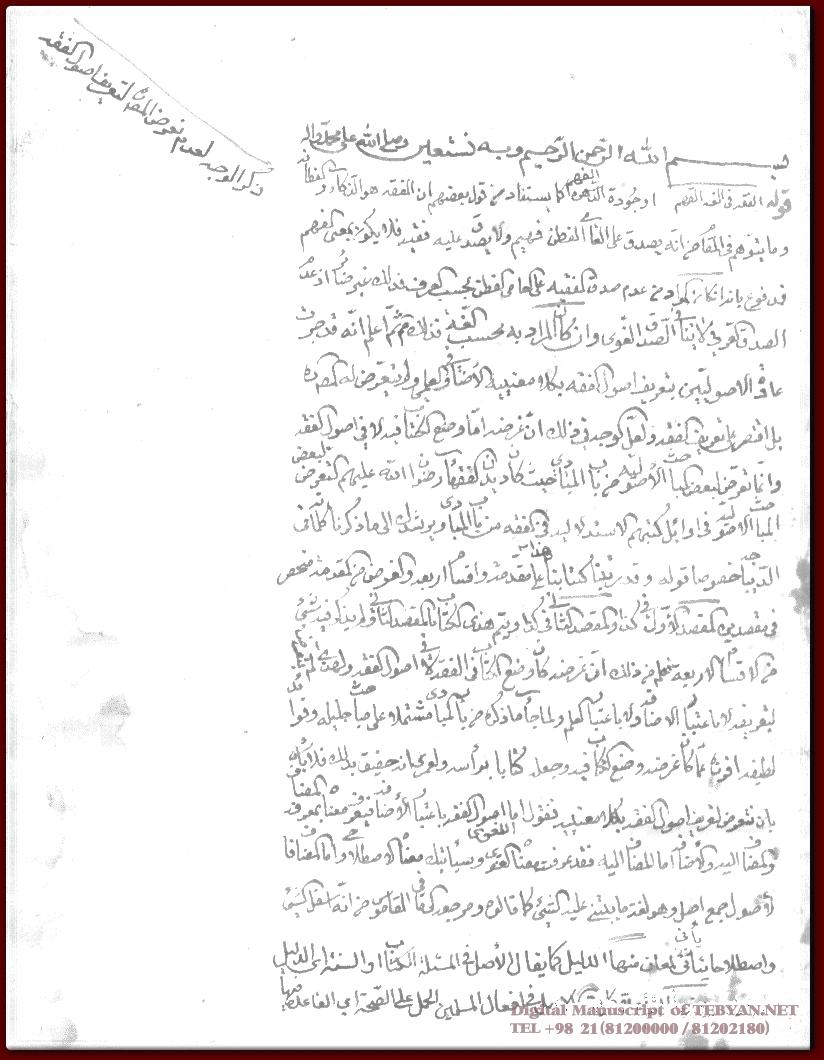 ذكر الوجه لعدم تعرض المصنف لتعريف اصول الفقه
بسم الله الرحمن الرحيم وبه نستعين وصلى الله على محمد واله
قوله الفقه في اللغة الفهم او جودة الذهن كما يستفاد من قول بعضهم ان الفقه هو الذكاء و الفطانة
وما يتوهم في المقام من انه يصدق على العامي الفطن فهيم ولا يصدق عليه فقيه فلا يكون بمعنى الفهم
فمدفوع بانه ان كان المراد من عدم صدق الفقيه على العامي الفطن بحسب العرف فذلك غير ضائر اذ عدم
الصدق العرفي لا ينافي الصدق اللغوي وان كان المراد به بحسب اللغة فذلك ثم اعلم انه قد جرت
عادة الاصوليين بتعريف اصول الفقه بكلا معنييه الأضافي و العلمي ولم يتعرض له المصنف ره
بل اقتصر على تعريف الفقه ولعل الوجه في ذلك ان غرضه اما وضع الكتاب فيه لا في اصول الفقه
وانما تعرض لبعض مباحث الأصولية من باب المبادي حيث كان ديدن الفقهاء رضوان الله عليهم التعرض لبعض
المباحث الاصولية في اوايل كتبهم الاستدلالية في الفقه من باب المبادي ويرشدك الى ما ذكرنا كلامه في
الديباجة خصوصا قوله وقد رتبنا كتابنا هذا على مقدمة واقسام اربعة والغرض من المقدمة منحصر
في مقصدين المقصد الأول في كذا والمقصد الثاني في كذا ويتم هذا الكتاب بالمقصد الثاني ولم يذكر فيه شيء
من الاقسام الاربعة فيعلم من ذلك ان غرضه كان وضع الكتاب في الفقه لا في اصول الفقه ولهذا لم يتعرض
لتعريفه لا باعتبار الاضافة ولا باعتبار العلم ولما جاء ما ذكره من باب المبادي مشتملا على مباحث جليلة وفوائد
لطيفة افرزناه عما كان غرضه وضع الكتاب فيه وجعله كتابا برأسه ولعمري انه حقيق بذلك فلا بأس
بان نتعرض لتعريف اصول الفقه بكلا معنييه فنقول اما اصول الفقه باعتبار الأضافة فيعرف معناه بمعرفة المضاف
والمضاف اليه والأضافة اما المضاف اليه فقد عرفت معناه اللغوي وسيأتيك معناه الاصطلاحي واما المضاف
لأصول جمع اصل وهو لغة ما يبتني عليه الشيء كما قالوه ومرجعه الى ما في القاموس من انه اسفل الشيء
واصطلاحا يأتي لمعان منها الدليل كما يقال الأصل في المسئلة الكتاب و السنة اي الدليل
الاصل في افعال المسلمين الحمل على الصحة اي القاعدة
Digital Manuscript of TEBYAN.NET
TEL +98 21(81200000 / 81202180)